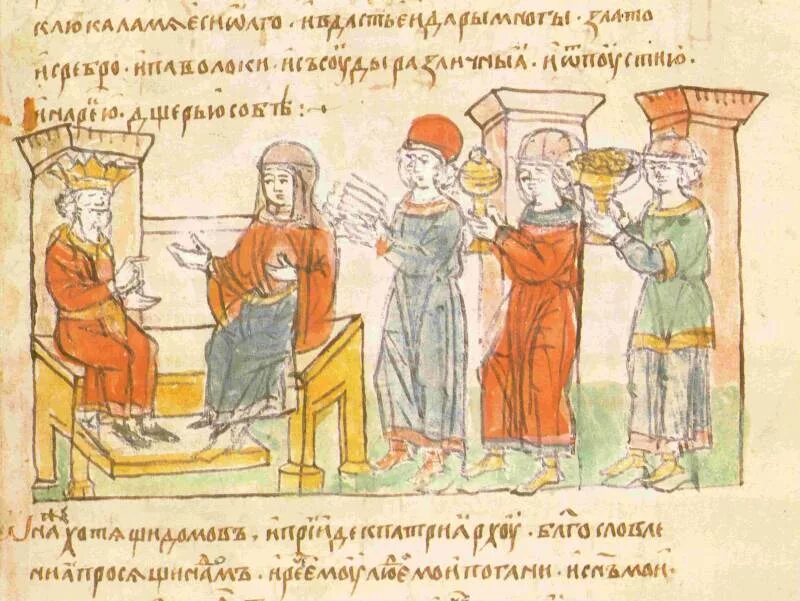 клюкала мя еси ѡлго · и вдасть еи дары многы · злато
и сребро · и паволоки · и съсоуды различныꙗ · и ѿпоусти ю ·
и нарек ю · дщерью собѣ :·
ѡна хотящи домовъ · и прїиде к патриархоу · блг҃ословле
ниа просящи на дом · и рече емоу людье мои погани · и сн҃ъ мои ·